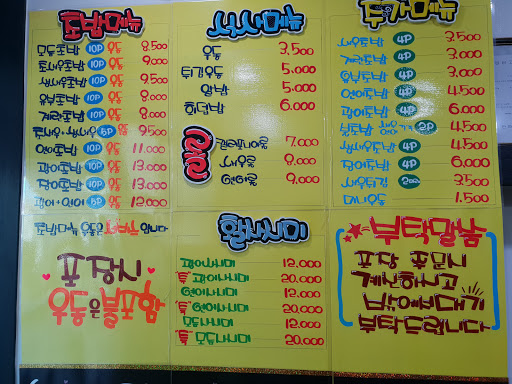 초밥메뉴
모둠초밥 10P 우동 8.500
초새우초밥 10P 우동 9.500
생새우초밥 10P 우동 9.500
유부초밥 10P 우동 8.000
계란초밥 10P 우동 8.000
초새우+생새우 5P 우동 9.500
연어초밥 10P 우동 11.000
광어초밥 10P 우동 13.000
장어초밥 10P 우동 13.000
광어+연어 5P 우동 12.000
초밥메뉴 우동은 입니다
포장시
우동은불포함
식사메뉴
우동 3.500
튀김우동 5.000
알밥 5.000
회덮밥 6.000
롤
캘리포니아롤 7.000
새우롤 8.000
연어롤 9.000
활사시미
광어사시미 12.000
광어사시미 20.000
연어사시미 12.000
연어사시미 20.000
모둠사시미 12.000
모둠사시미 20.000
추가메뉴
새우초밥 4P 3.500
계란초밥 4P 3.000
유부초밥 4P 3.000
연어초밥 4P 4.500
광어초밥 4P 6.000
초밥 2P 4.500
생새우초밥 4P 4.500
장어초밥 4P 6.000
새우튀김 3.500
미니우동 1.500
부탁말씀
포장 주문시
계산하시고
밖에서대기
부탁드립니다